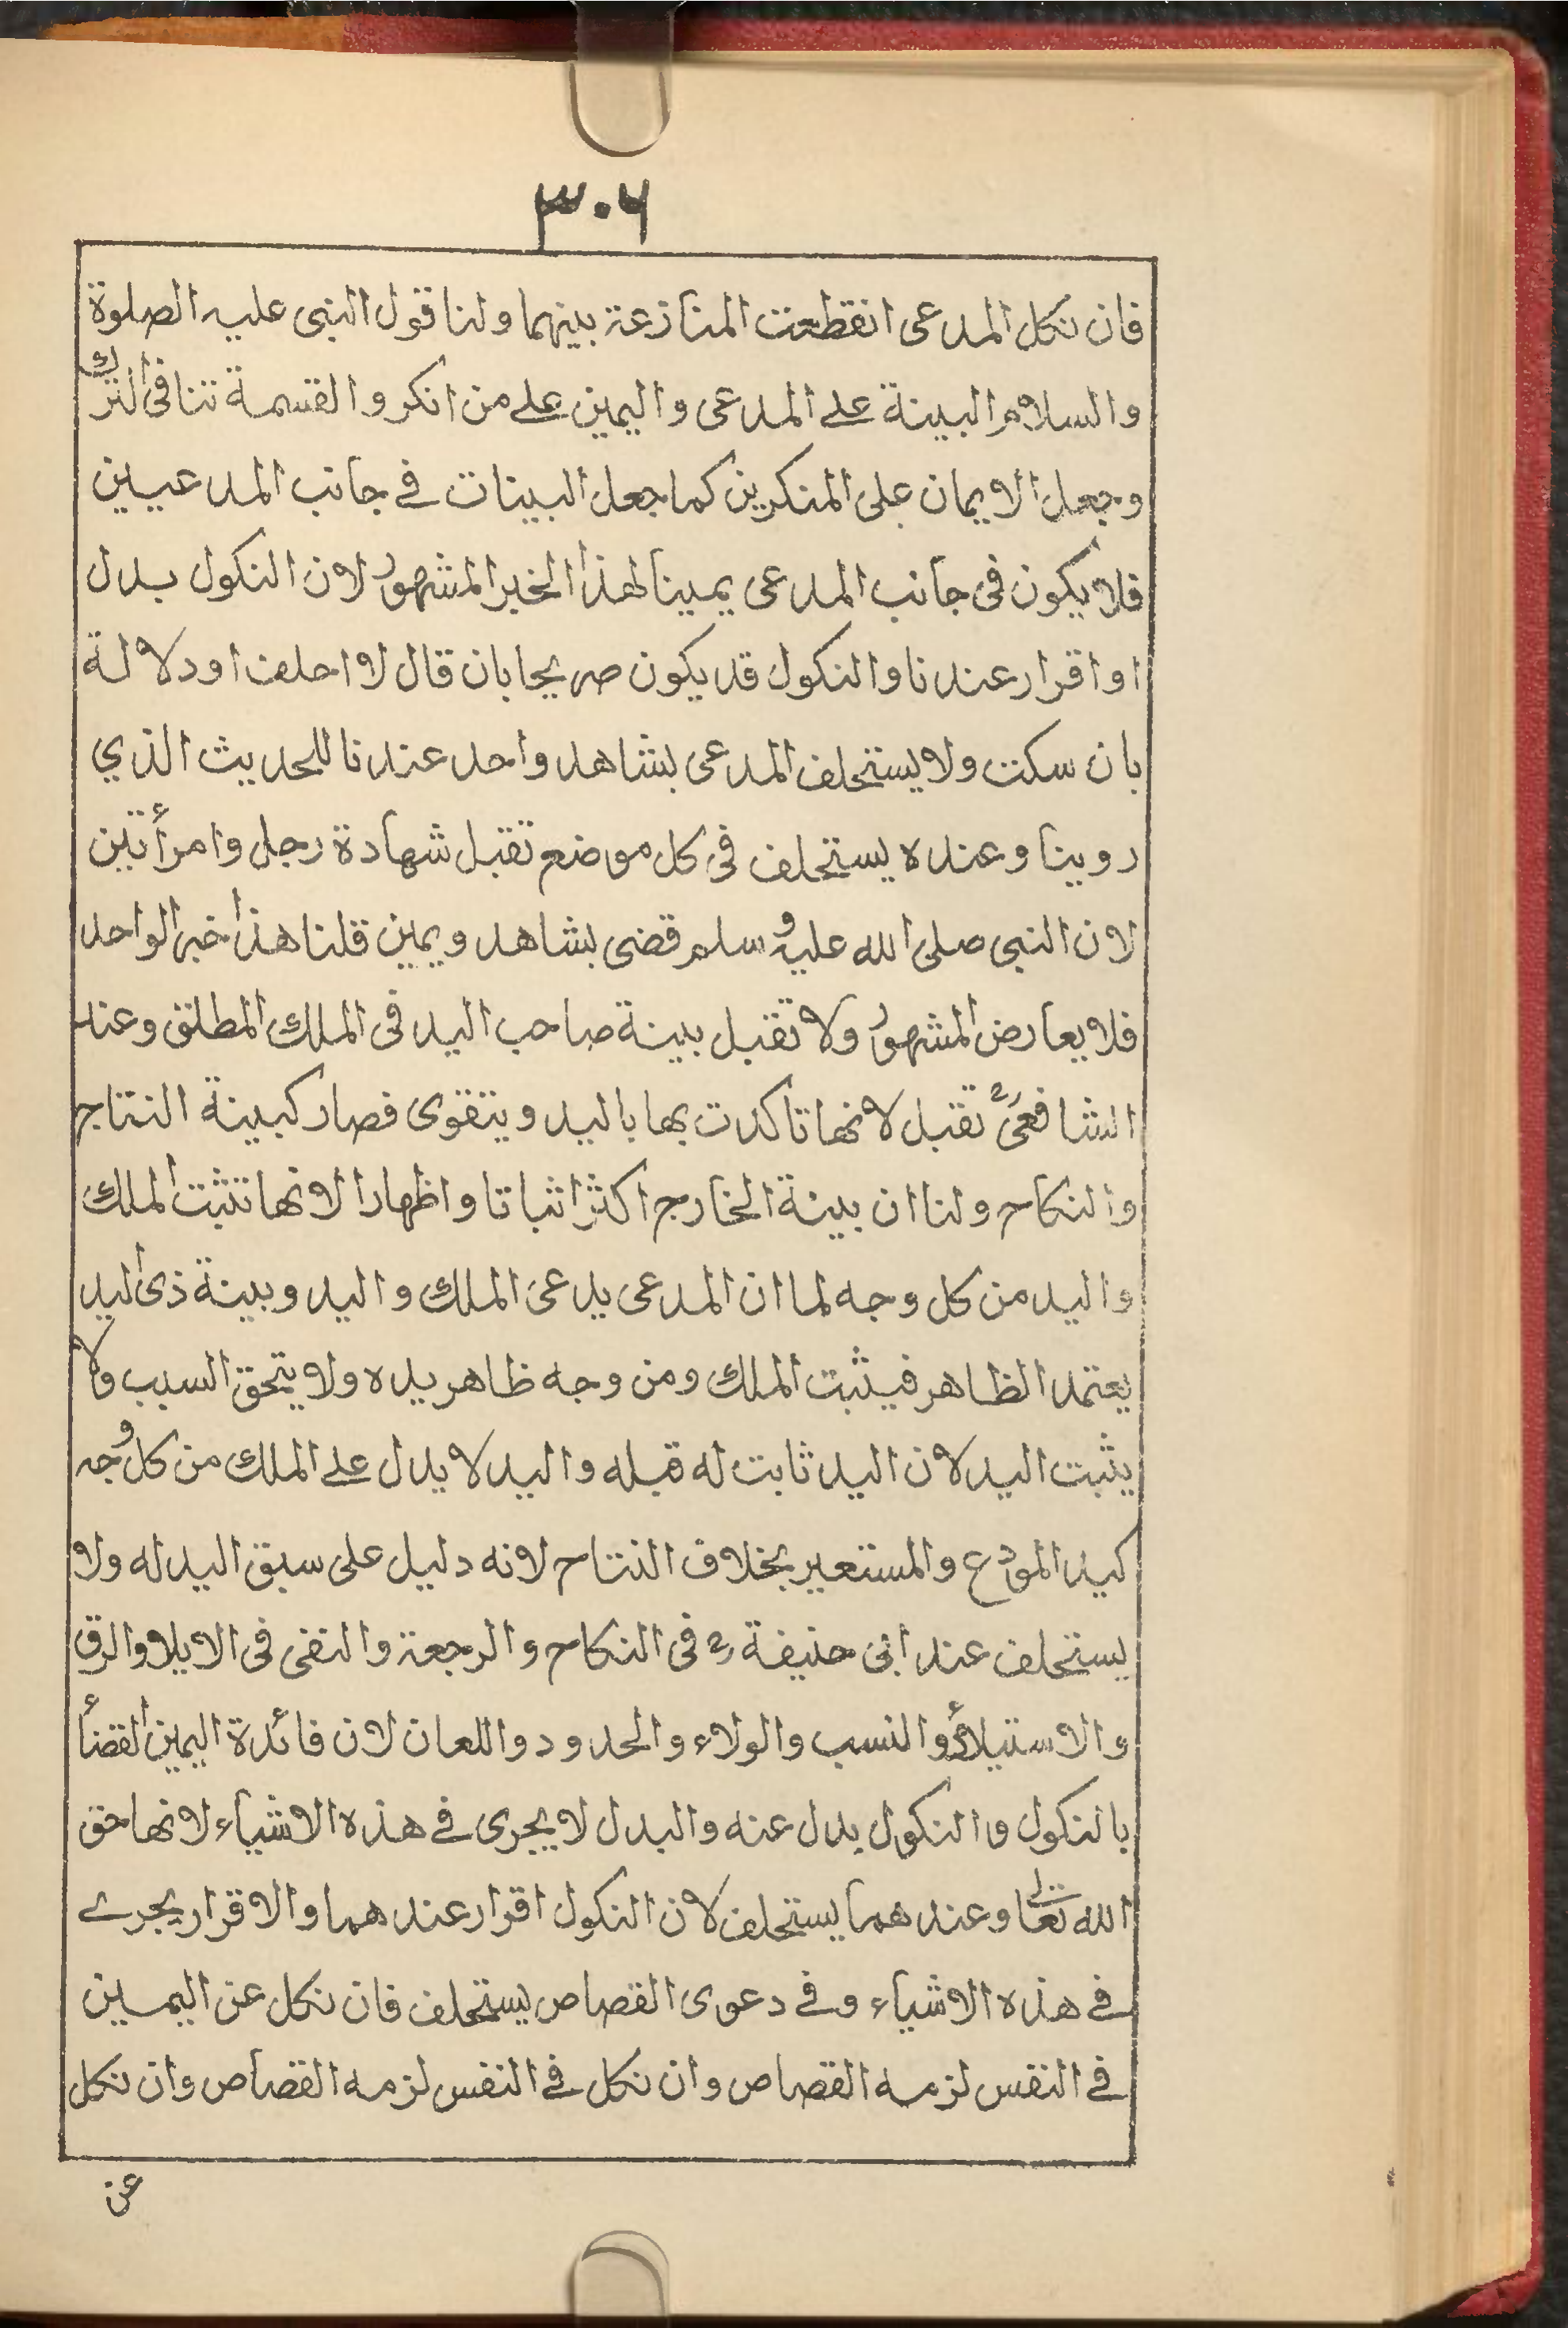 ٣٠٦
فان نكل المدعى انقطعت المنازعة بينهما ولنا قول النبى عليه الصلوة
والسلام البينة علے المدعى واليمين علے من انكر والقسمة تنافى الترك
وجعل الايمان على المنكرين كما جعل البينات فے جانب المدعيين
فلا يكون فى جانب المدعى يمينا لهذا الخبر المشهور لان النكول بدل
او اقرار عندنا والنكول قد يكون صريحا بان قال لا احلف او دلالة
بان سكت ولا يستحلف المدعى بشاهد واحد عندنا للحديث الذي
روينا وعنده يستحلف فى كل موضع تقبل شهادة رجل وامرأتين
لان النبى صلى الله عليه وسلم قضى بشاهد ويمين قلنا هذا خبر الواحد
فلا يعارض المشهور ولا تقبل بينة صاحب اليد فى الملك المطلق وعند
الشافعىؒ تقبل لانها تاكدت بها باليد ويتقوى فصار كبينة النتاج
والنكاح ولنا ان بينة الخارج اكثر اثباتا واظهارا لانها تثبت الملك
واليد من كل وجه لما ان المدعى يدعى الملك واليد وبينة ذى اليد
يعتمد الظاهر فيثبت الملك ومن وجه ظاهر يده ولا يتحق السبب ولا
يثبت اليد لان اليد ثابت له قبله واليد لا يدل علے الملك من كل وجه
كيد المودع والمستعير بخلاف النتاح لانه دليل على سبق اليد له ولا
يستحلف عند ابى حنيفة رح فى النكاح والرجعة والنفى فى الايلا والرق
والاستيلاد والنسب والولاء والحدود واللعان لان فائدة اليمين القضأ
بالنكول والنكول بدل عنه والبدل لا يجرى فے هذه الاشياء لانها حق
الله تعالى وعندهما يستحلف لان النكول اقرار عندهما والاقرار يجرے
فے هذه الاشياء وفے دعوى القصاص يستحلف فان نكل عن اليمين
فے النفس لزمه القصاص وان نكل فے النفس لزمه القصاص وان نكل
عن